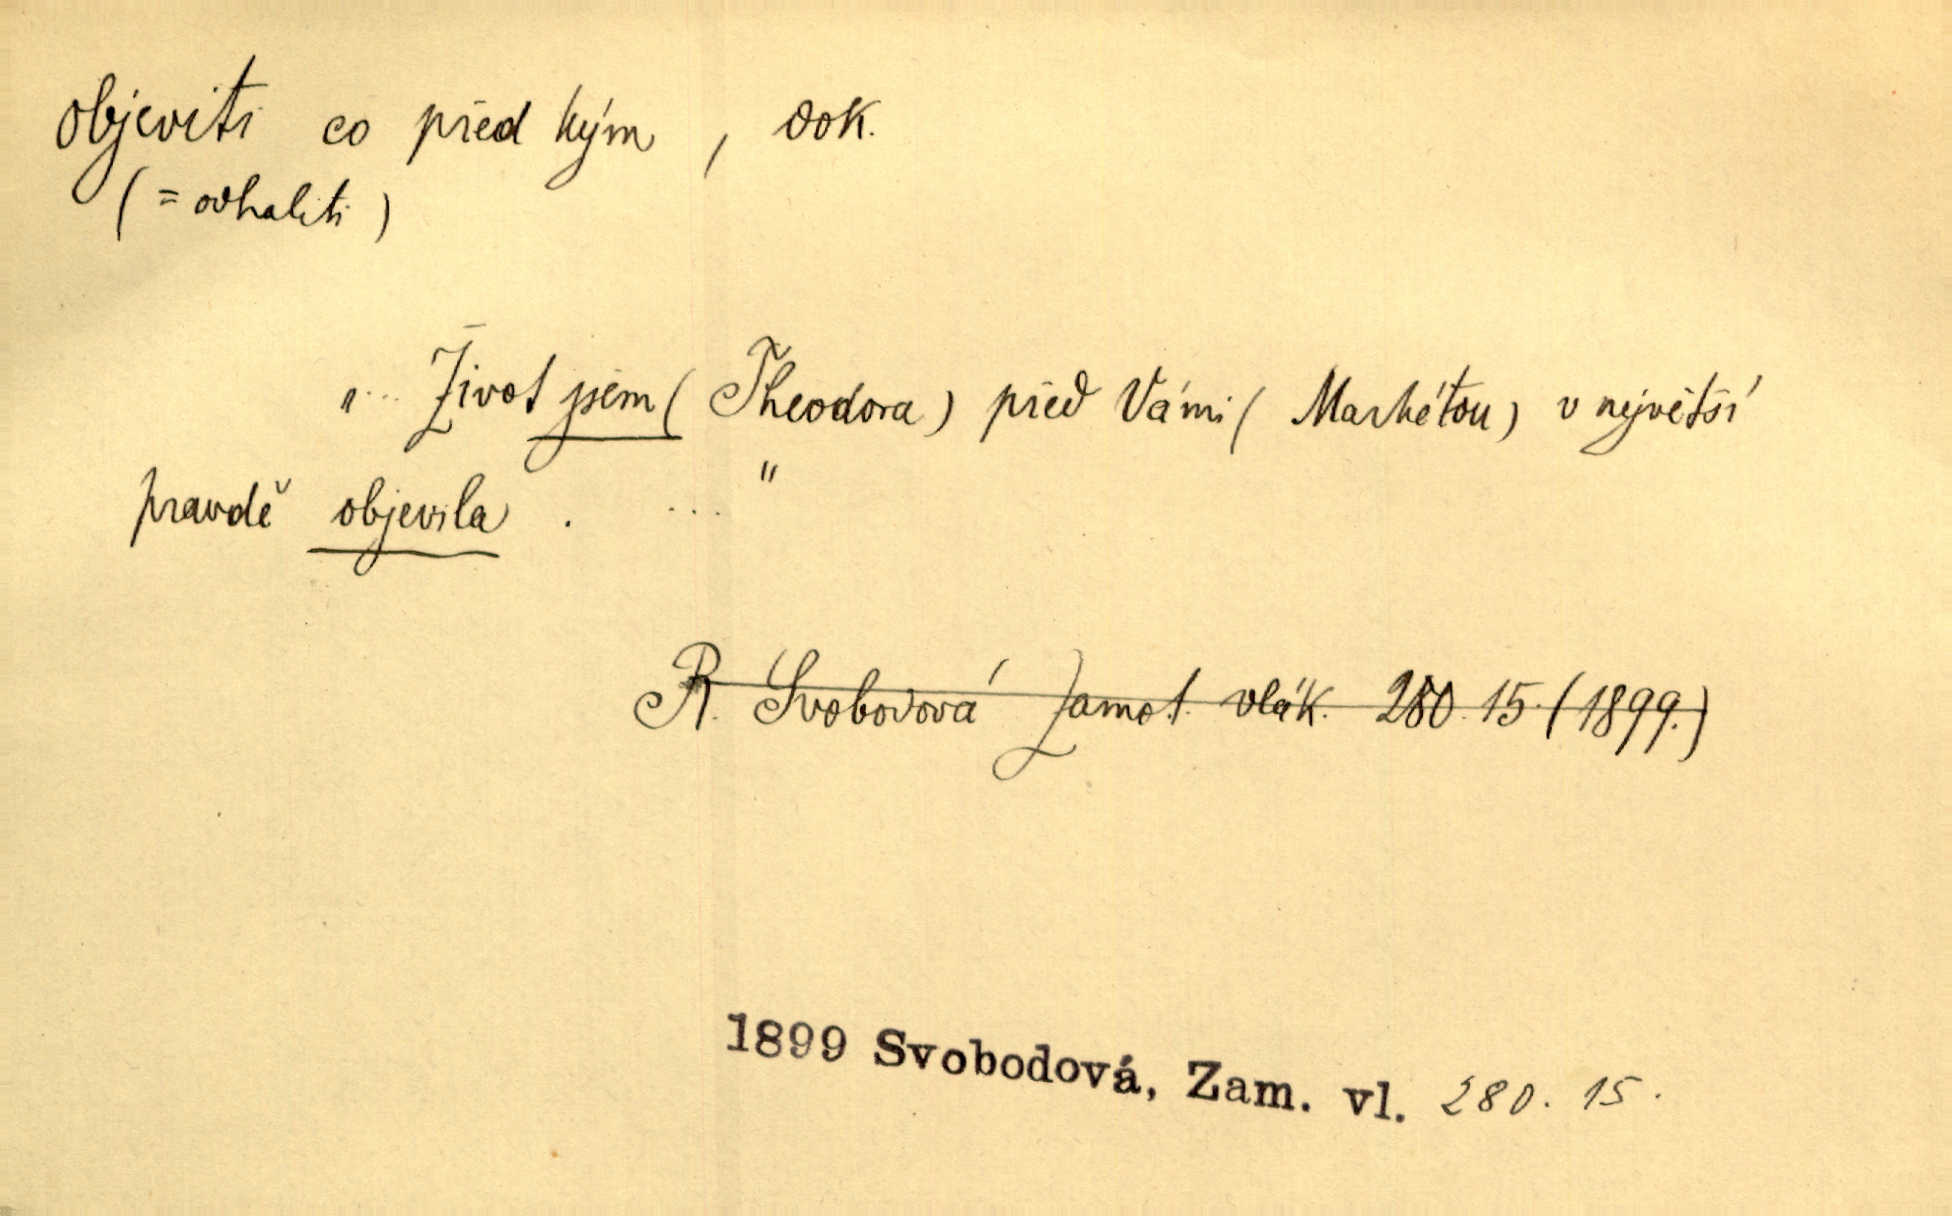 objeviti co před kým, dok.
(= odhaliti)
„... Život jsem (Theodora) před Vámi (Markétou) v největší
pravdě objevila. ..."
R. Svobodová Zamot. vlák. 280. 15. (1899.)
1899 Svobodová, Zam. vl. 280. 15.